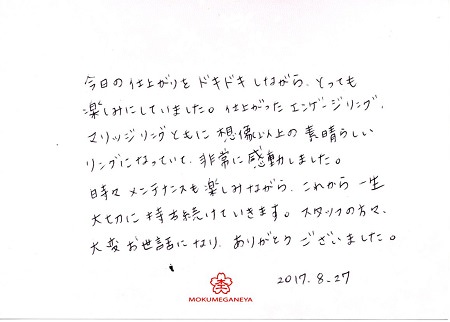 今日の仕上がりを ドキドキ しながら、とっても
楽しみにしていました。仕上がった エンゲージリング、
マリッジリングともに 想像以上の 素晴らしい
リングになっていて、非常に感動しました。
時々 メンテナンスも楽しみながら、これから 一生
大切に 持ち続けていきます。スタッフの方々、
大変 お世話になり、ありがとう ございました。
MOKUMEGANEYA
2017.8.27